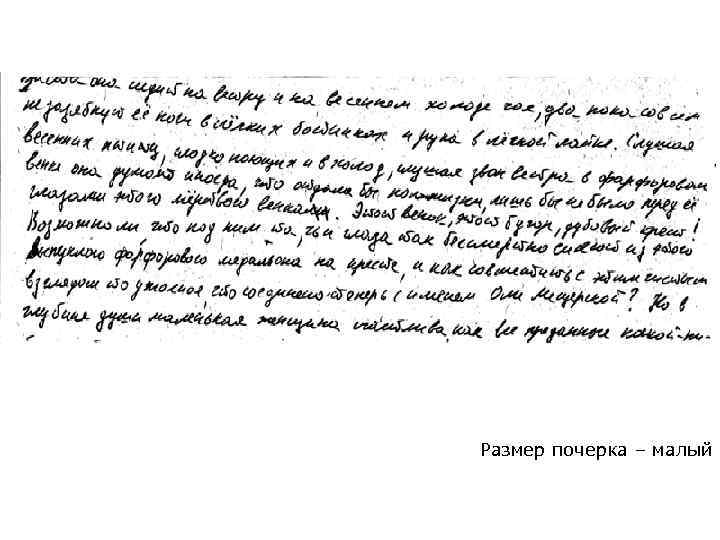 она сидит на ветру и на весеннем холоде час, два пока совсем
не зазябнут её ноги в лёгких ботинках и рука в лёгкой лайке. Слушая
весенних птиц, сладко поющих и в холод, слушая звон ветра в фарфоровом
венке она думает иногда, что отдала бы полжизни, лишь бы не было пред её
глазами этого мёртвого венка. Этот венок, этот бугор, дубовый крест!
Возможно ли что под ним та, чьи глаза так бессмертно сияют из этого
выпуклого фарфорового медальона на кресте, и как совместить с этим чистым
взглядом то ужасное, что соединено теперь с именем Оли Мещерской? Но в
глубине души маленькая женщина счастлива, как все преданные какой-ни-
Размер почерка – малый